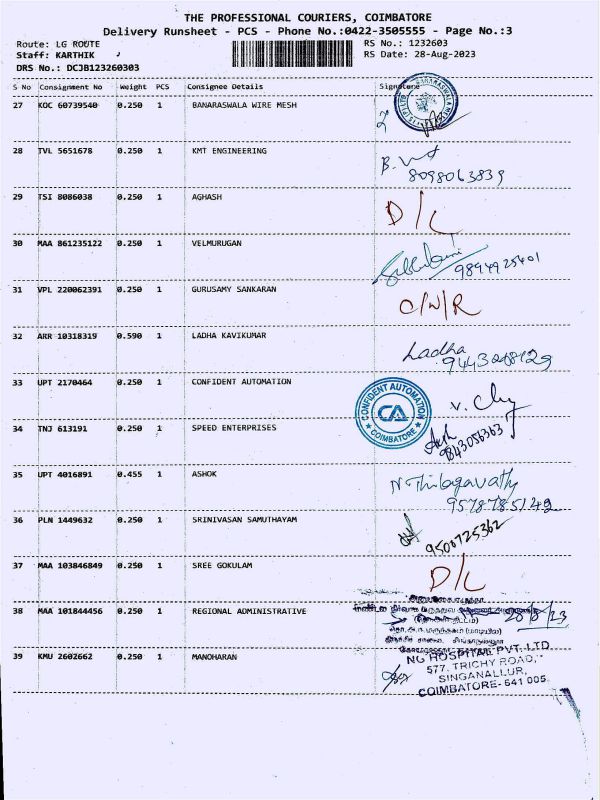 THE PROFESSIONAL COURIERS, COIMBATORE
Delivery Runsheet - PCS - Phone No.:0422-3505555 - Page No.:3
Route: LG ROUTE RS No.: 1232603
Staff: KARTHIK RS Date: 28-Aug-2023
DRS No.: DCJB123260303
S No Consignment No Weight PCS Consignee Details Signature
27 KOC 60739540 0.250 1 BANARASWALA WIRE MESH
28 TVL 5651678 0.250 1 KMT ENGINEERING
8098063839
29 TSI 8086038 0.250 1 AGHASH D/L
30 MAA 861235122 0.250 1 VELMURUGAN
9894925401
31 VPL 220062391 0.250 1 GURUSAMY SANKARAN C/N/R
32 ARR 10318319 0.590 1 LADHA KAVIKUMAR Ladha
33 UPT 2170464 0.250 1 CONFIDENT AUTOMATION
CONFIDENT AUTOMATION
CA
COIMBATORE
34 TNJ 613191 0.250 1 SPEED ENTERPRISES
9843056363
35 UPT 4016891 0.455 1 ASHOK N Thilagavathy
9578785149
36 PLN 1449632 0.250 1 SRINIVASAN SAMUTHAYAM
9500725362
37 MAA 103846849 0.250 1 SREE GOKULAM D/L
38 MAA 101844456 0.250 1 REGIONAL ADMINISTRATIVE 28/8/23
39 KMU 2602662 0.250 1 MANOHARAN
NG HOSPITAL PVT. LTD
577, TRICHY ROAD,
SINGANALLUR,
COIMBATORE- 641 005